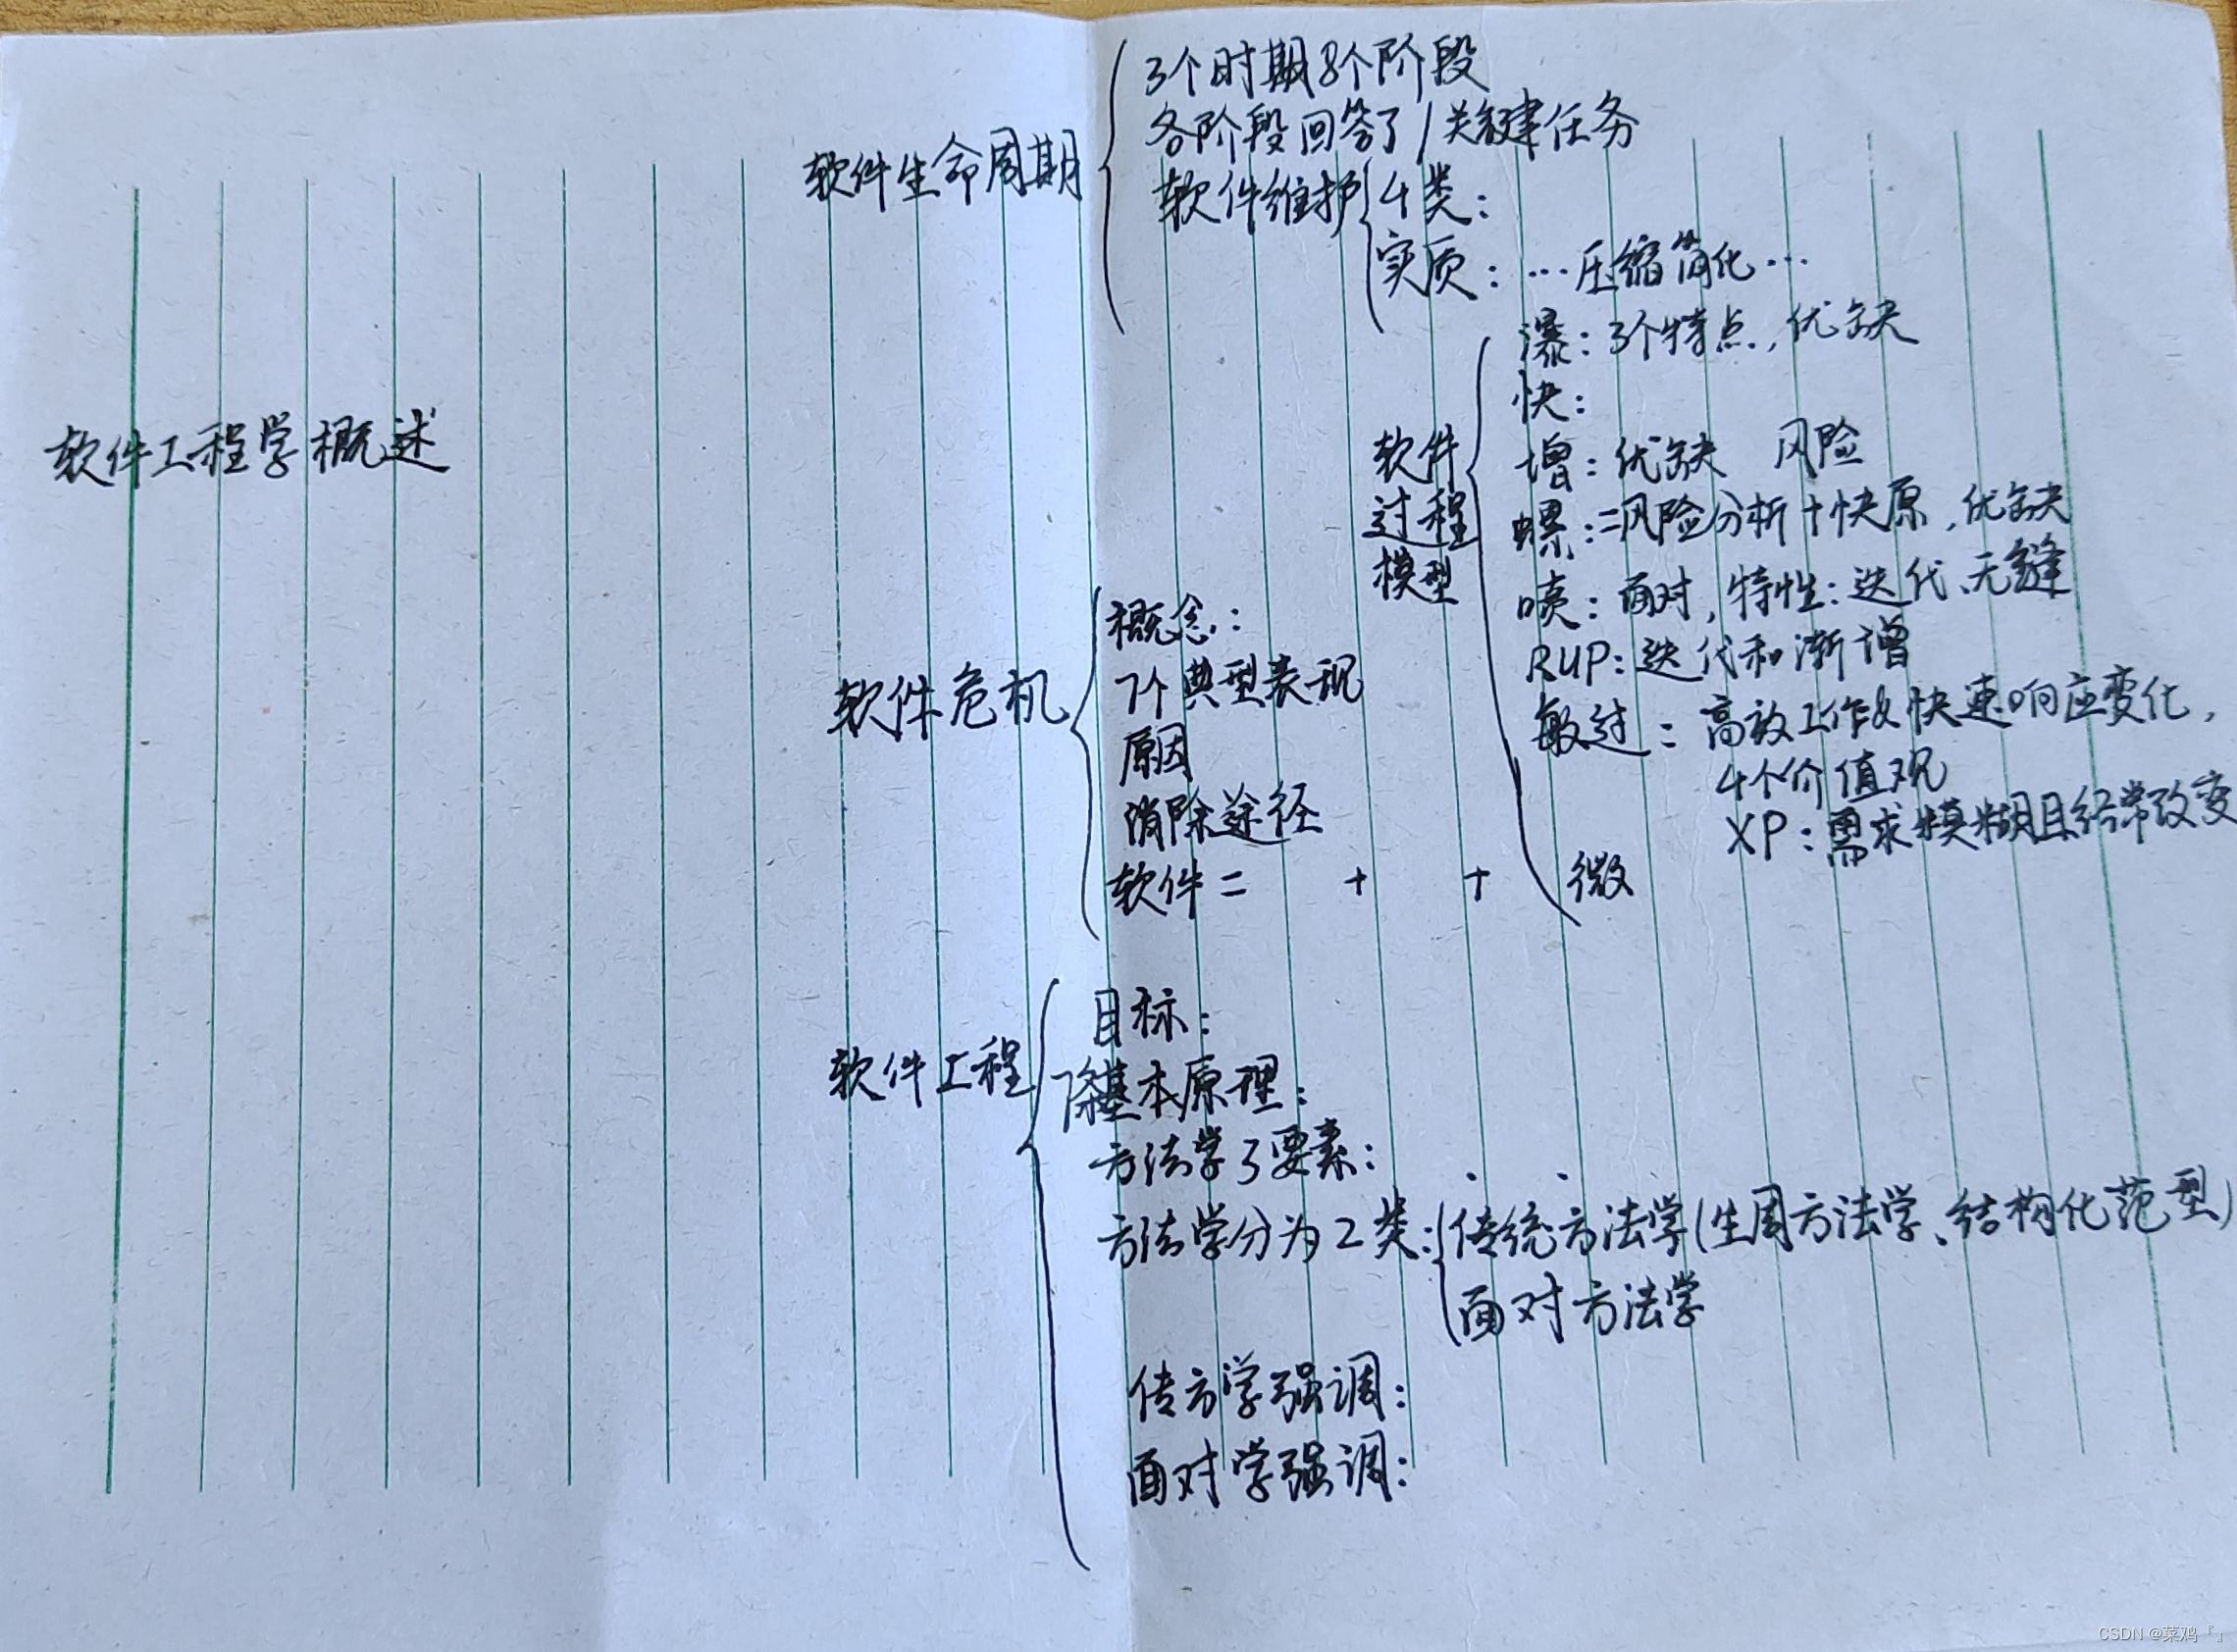 软件工程学概述
软件生命周期
3个时期8个阶段
各阶段回答了/关键任务
软件维护
4类:
实质: …压缩简化…
软件
过程
模型
瀑: 3个特点, 优缺
快:
增: 优缺 风险
螺: =风险分析+快原, 优缺
喷: 面对, 特性: 迭代、无缝
RUP: 迭代和渐增
敏过: 高效工作&快速响应变化,
4个价值观
XP: 需求模糊且经常改变
微
软件危机
概念:
7个典型表现
原因
消除途径
软件= + +
软件工程
目标:
7条基本原理:
方法学3要素: 、 、
方法学分为2类:
传统方法学(生周方法学、结构化范型)
面对方法学
传方学强调:
面对学强调:
CSDN @菜鸡『』